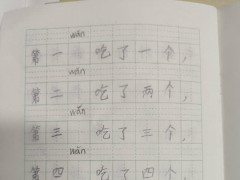 wǎn
第一 吃了一个，
wǎn
第二 吃了两个，
wǎn
第三 吃了三个，
wǎn
第四 吃了四个，